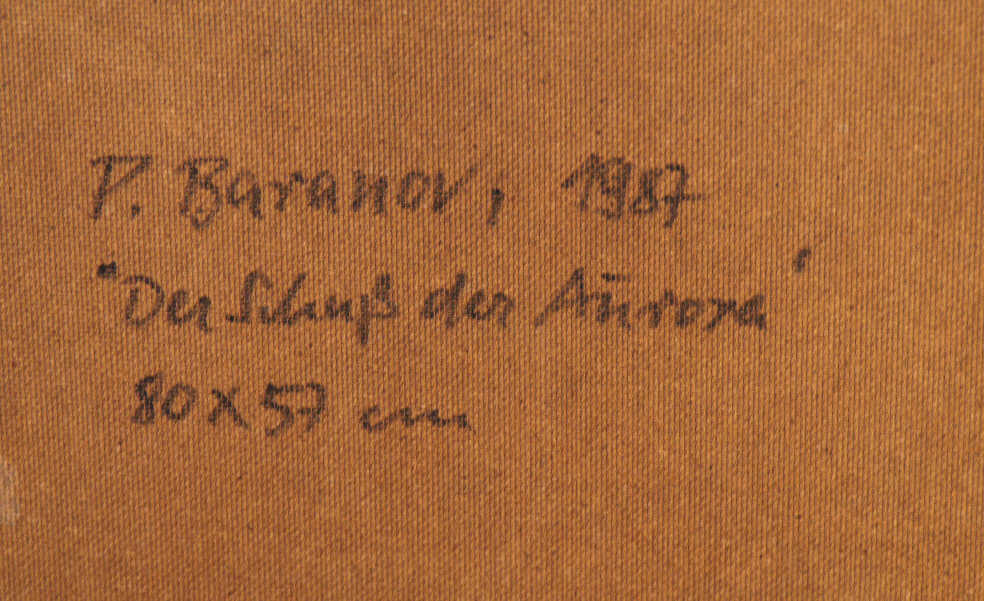 P. Baranov, 1987
"Der Schuß der Aurora"
80 x 57 cm